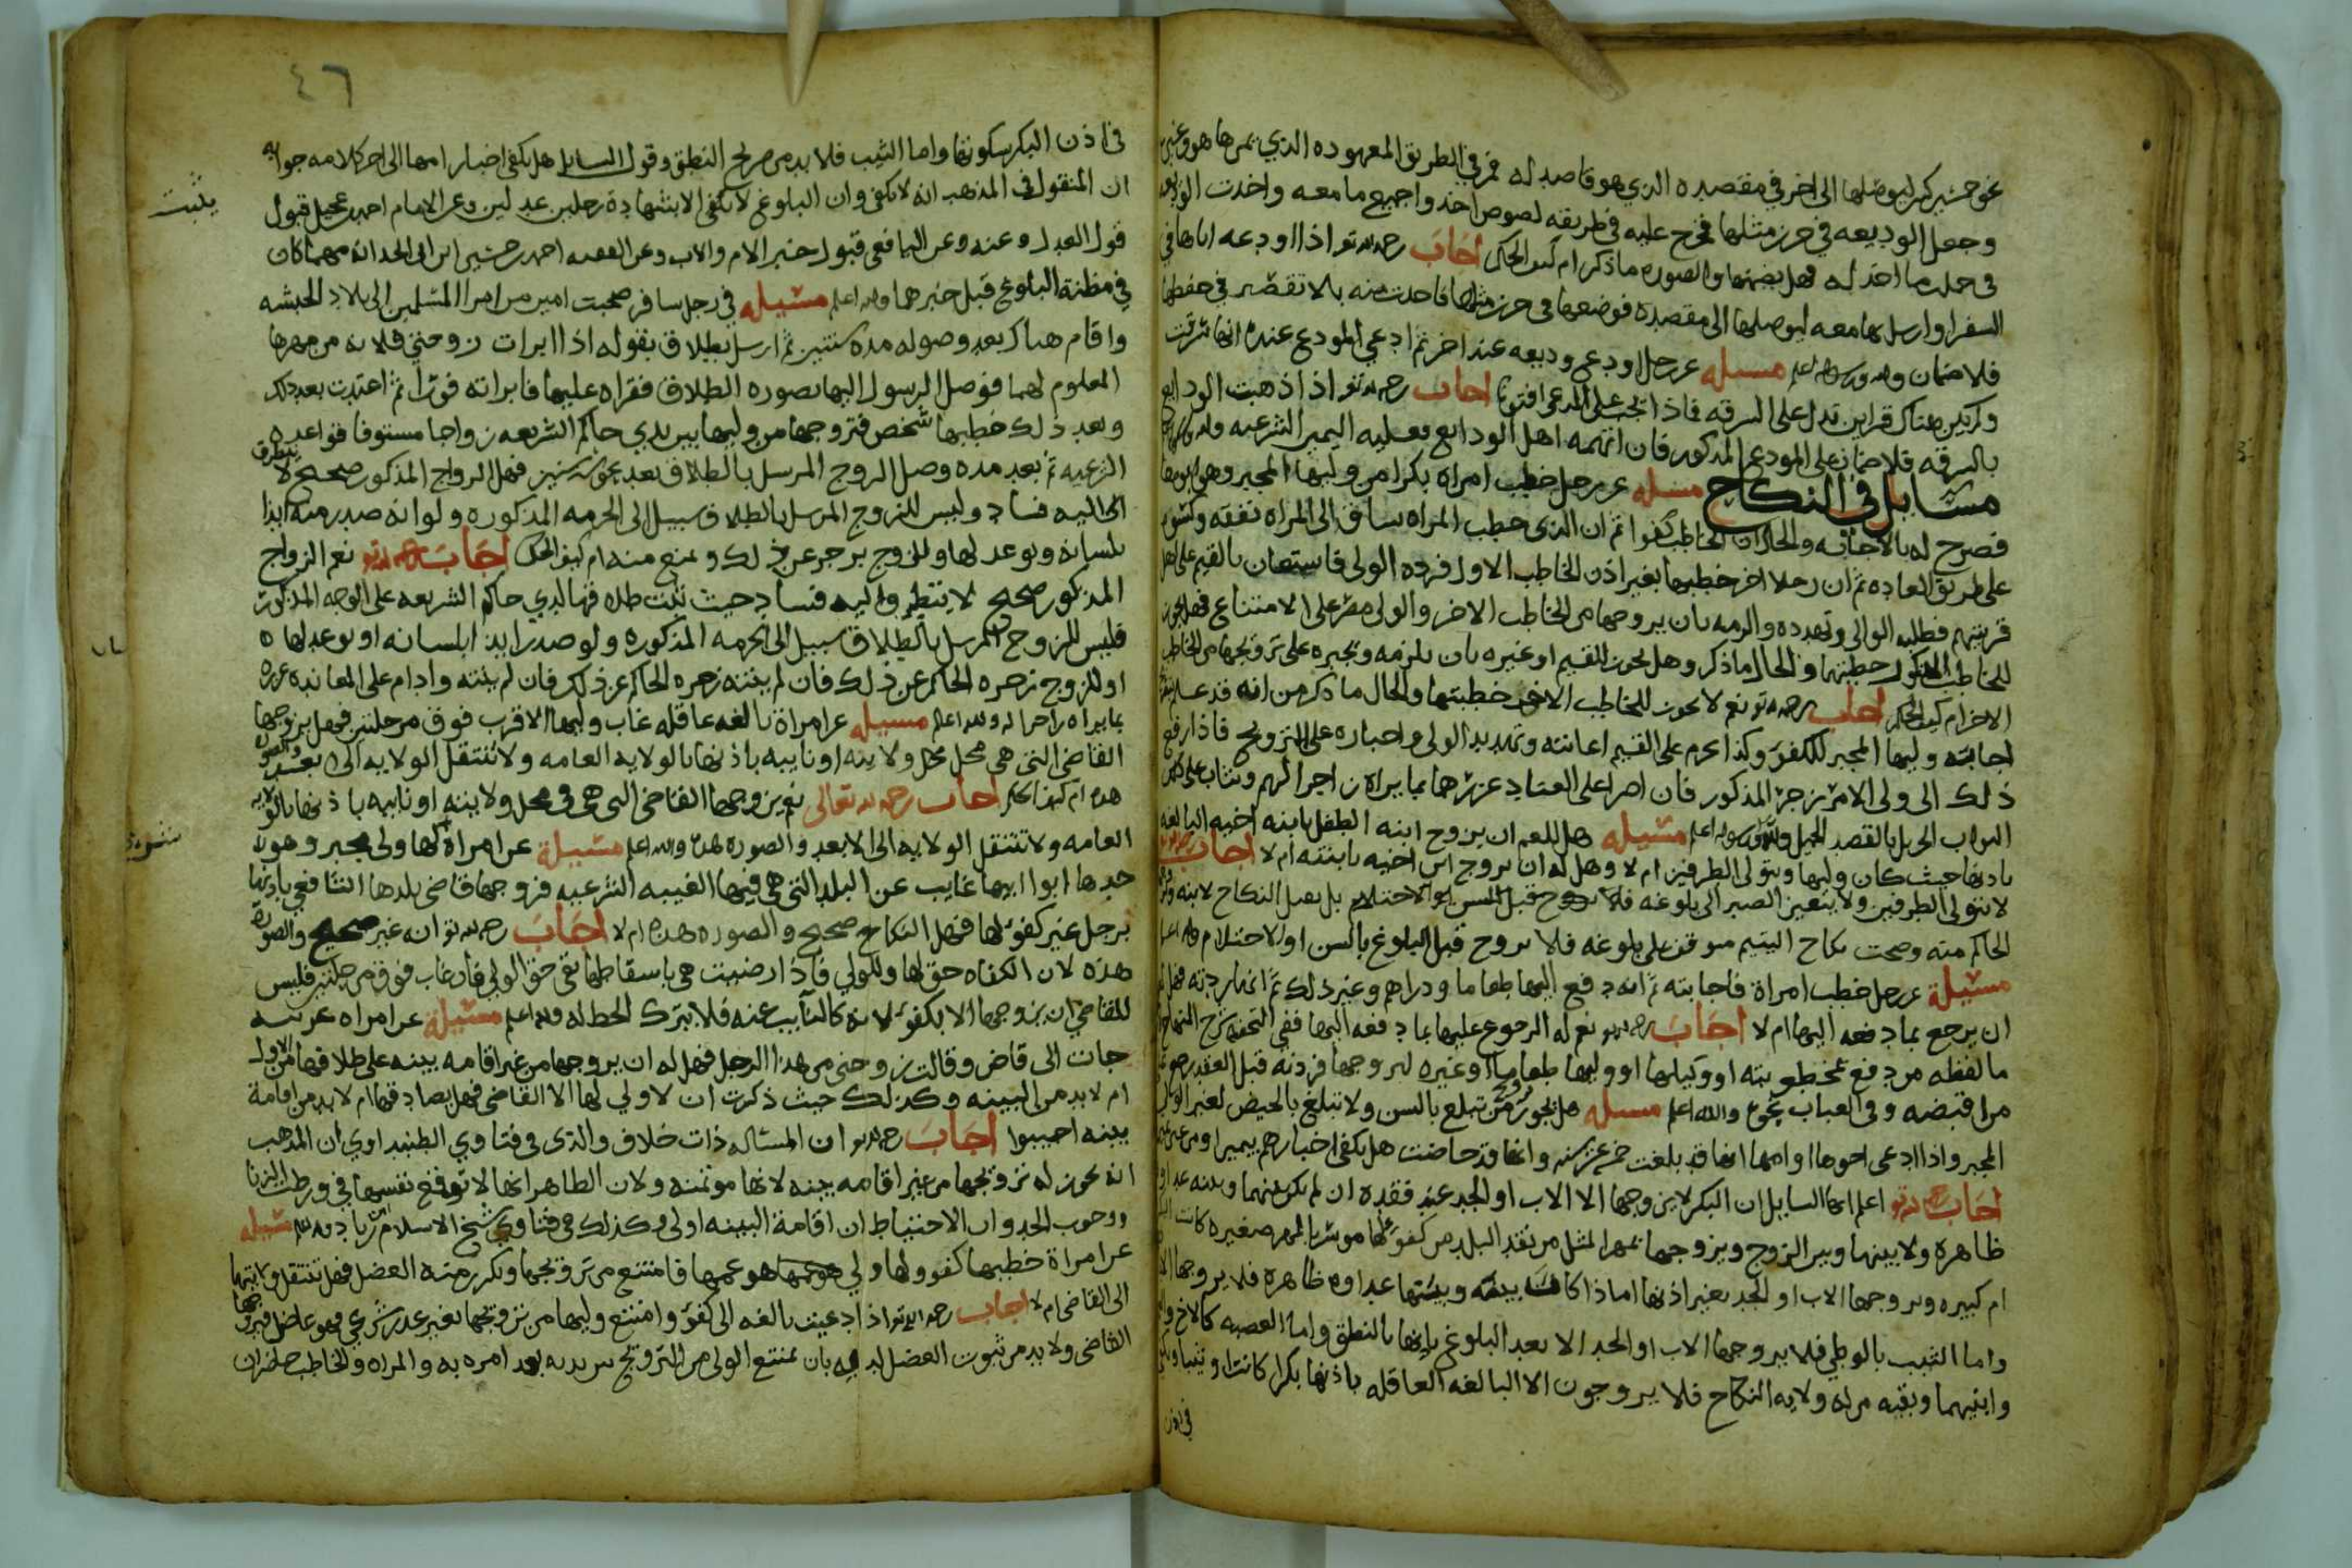 وجعل الوديعه في حرز مثلها فخرج عليه في طريقه لصوص اخذوا جميع ما معه واخذت الوديعه
في جملة ما اخذ له فهل يضمنها والصوره ماذكر ام كيف الحكم اجاب رحمه الله تعالى اذا اودعه اياها في
السفر او ارسل بها معه ليوصلها الى مقصده فوضعها في حرز مثلها فاخذت منه بلا تقصير في حفظها
فلا ضمان والله اعلم مسيله عن رجل اودع وديعه عند اخر ثم ادعى المودع عنده انها سرقت
ولم يكن هناك قراين تدل على السرقه فماذا يجب على المدعى افتونا اجاب رحمه الله تعالى اذا ذهبت الودايع
بالسرقه فلا ضمان على المودع المذكور فان اتهمه اهل الودايع فعليه اليمين الشرعيه والله
مسايل في النكاح مسيله عن رجل خطب امراه بكرا من وليها المجبر وهو ابوها
فصرح له بالاجابه والحال ان الخاطب كفوا ثم ان الذي خطب المراه ساق الى المراه نفقه وكسوه
على طريق العاده ثم ان رجلا اخر خطبها بغير اذن الخاطب الاول فرده الولي فاستعان بالقيم على اهل
قريتهم فطلب الوالي وتهدده والزمه بان يزوجها من الخاطب الاخر والولي مصر على الامتناع فهل يجوز
للخاطب المذكور خطبتها والحال ماذكر وهل يجوز للقيم او غيره بان يلزمه ويجبره على تزويجها من الخاطب
الاخر ام كيف الحكم اجاب رحمه الله تعالى نعم لا يجوز للخاطب الاخر خطبتها والحال ما ذكر من انه قد علم
اجابته وليها المجبر للكفو وكذا يحرم على القيم اعانته وتهديد الولي واجباره على التزويج فاذا رفع
ذلك الى ولي الامر زجر المذكور فان اصرا على العناد عزرهما بما يراه زاجرا لهم ويثاب على ذلك
الثواب الجزيل بالقصد الجميل والله اعلم مسيله هل للعم ان يزوج ابنه الطفل بابنه اخيه البالغه
باذنها حيث كان وليها ويتولى الطرفين ام لا وهل له ان يزوج ابن اخيه بابنته ام لا اجاب
لا يتولى الطرفين ولا يتعين الصبر الى بلوغه فلا يزوج قبل السن او الاحتلام بل يقبل النكاح لابنه
الحاكم منه وصحت نكاح اليتيم موقف على بلوغه فلا يزوج قبل البلوغ بالسن او الاحتلام والله اعلم
مسيلة عن رجل خطب امراة فاجابته ثم انه دفع اليها طعاما ودراهم وغير ذلك ثم انها ردته فهل له
ان يرجع بما دفعه اليها ام لا اجاب رحمه الله تعالى نعم له الرجوع عليها بما دفعه اليها ففي التحفه شرح المنهاج
ما لفظه من دفع لمخطوبته او وكيلها او وليها طعاما او غيره ليتزوجها فردته قبل العقد رجع على
من اقبضه وفي العباب نحوه والله اعلم مسيله هل يجوز تزويج من تبلغ بالسن ولا تبلغ بالحيض لغير الولي
المجبر واذا ادعى اخوها او امها انها قد بلغت خمسة عشر سنه وانها قد حاضت هل يكفي اخبارهم بيمين او من غير
اجاب رحمه الله تعالى اعلم ايها السايل ان البكر لا يزوجها الا الاب او الجد عند فقده ان لم يكن بينهما وبينه عداوه
ظاهرة ولا بينها وبين الزوج ويزوجها بمهر المثل من نقد البلد من كفو لها موسرا بالمهر صغيره كانت
ام كبيره ويزوجها الاب او الجد بغير اذنها اما اذا كانت بينه وبينها عداوه ظاهرة فلا يزوجها الا
واما الثيب بالوطي فلا يزوجها الاب او الجد الا بعد البلوغ باذنها بالنطق واما العصبه كالاخ والعم
وابنيهما وبقيه من له ولايه النكاح فلا يزوجون الا البالغه العاقله باذنها بكرا كانت او ثيبا ويكفي
في اذن
٤٦
في اذن البكر سكوتها واما الثيب فلا بد من صريح النطق وقول السايل هل يكفي اخبار امها الى اخر كلامه جوابه
ان المنقول في المذهب انه لا يكفي وان البلوغ لا يكفي الا بشهادة رجلين عدلين وعن الامام احمد عجيل قبول
يثبت
قول العدل وعنه وعن اليافعي قبول خبر الام والاب وعن الفقيه احمد بن حشيبر ابن ابي الجد انه مهما كان
في مظنة البلوغ قبل خبرهما والله اعلم مسيله في رجل سافر صحبت امير من امرا المسلمين الى بلاد الحبشه
واقام هناك بعد وصوله مدة سنتين ثم ارسل بطلاق بقوله اذا ابرات زوجتي فلانه من مهرها
المعلوم لهما فوصل الرسول اليها بصوره الطلاق فقراه عليها فابراته فورا ثم اعتدت بعد ذلك
وبعد ذلك خطبها شخص فتزوجها من وليها بين يدي حاكم الشريعه زواجا مستوفا قواعده
الشرعيه ثم بعد مده وصل الزوج المرسل بالطلاق بعد نحو سنين فهل الزواج المذكور صحيح لا يتطرق
الى اليه فساد وليس للزوج المرسل بالطلاق سبيل الى الحرمه المذكوره ولو انه صدر منه ايذا
بلسانه وتوعد لها وللزوج يزجر عن ذلك ويمنع منه ام كيف الحكم اجاب رحمه الله تعالى نعم الزواج
المذكور صحيح لا يتطرق اليه فساد حيث ثبت طلاقها لدي حاكم الشريعه على الوجه المذكور
فليس للزوج المرسل بالطلاق سبيل الى الحرمه المذكوره ولو صدر ايذا بلسانه او توعد لها
او للزوج زجره الحاكم عن ذلك فان لم ينته زجره الحاكم عن ذلك فان لم ينته وادام على المعانده عزره
بما يراه زاجرا له والله اعلم مسيله عن امراة بالغه عاقله غاب وليها الاقرب فوق مرحلتين فهل يزوجها
القاضي التي هي محل ولايته او نايبه باذنها بالولايه العامه ولا تنتقل الولايه الى الابعد والصوره
هذه ام كيف الحكم اجاب رحمه الله تعالى نعم يزوجها القاضي التي هي في محل ولايته او نايبه باذنها بالولايه
العامه ولا تنتقل الولايه الى الابعد والصوره هذه والله اعلم مسيلة عن امراة لها ولي مجبر وهو
جدها ابو ابيها غايب عن البلد التي هي فيها الغيبه الشرعيه فزوجها قاضي بلدها الشافعي باذنها
برجل غير كفو لها فهل النكاح صحيح والصوره هذه ام لا اجاب رحمه الله تعالى انه غير صحيح والصورة
هذه لان الكفاه حق لها وللولي فاذا رضيت هي باسقاطها بقي حق الولي فان غاب فوق مرحلتين فليس
للقاضي ان يزوجها الا بكفو لانه كالنايب عنه فلا يترك الحظ له والله اعلم مسيلة عن امراه غريبه
جات الى قاض وقالت زوجني من هذا الرجل فهل له ان يزوجها من غير اقامه بينه على طلاقها من الاول
ام لا بد من البينه وكذلك حيث ذكرت ان لا ولي لها الا القاضي فهل يصادقها ام لا بد من اقامة
بينه اجيبوا اجاب رحمه الله تعالى ان المساله ذات خلاف والذي في فتاوي الطنبداوي ان المذهب
انه يجوز له تزويجها من غير اقامه بينه لانها موتمنه ولان الظاهر انها لا توقع نفسها في ورطت الزنا
ووجوب الحد وان الاحتياط ان اقامة البينه اولى وكذلك في فتاوي شيخ الاسلام ابن زياد والله اعلم مسيله
عن امراة خطبها كفو ولها ولي هو عمها فامتنع من تزويجها وتكرر منه العضل فهل تنتقل ولايتها
الى القاضي ام لا اجاب رحمه الله تعالى اذا دعيت بالغه الى كفو وامتنع وليها من تزويجها بغير عذر شرعي فهو عاضل فيزوجها
القاضي ولا بد من ثبوت العضل لديه بان يمتنع الولي من التزويج بين يديه بعد امره به والمراه والخاطب حاضران